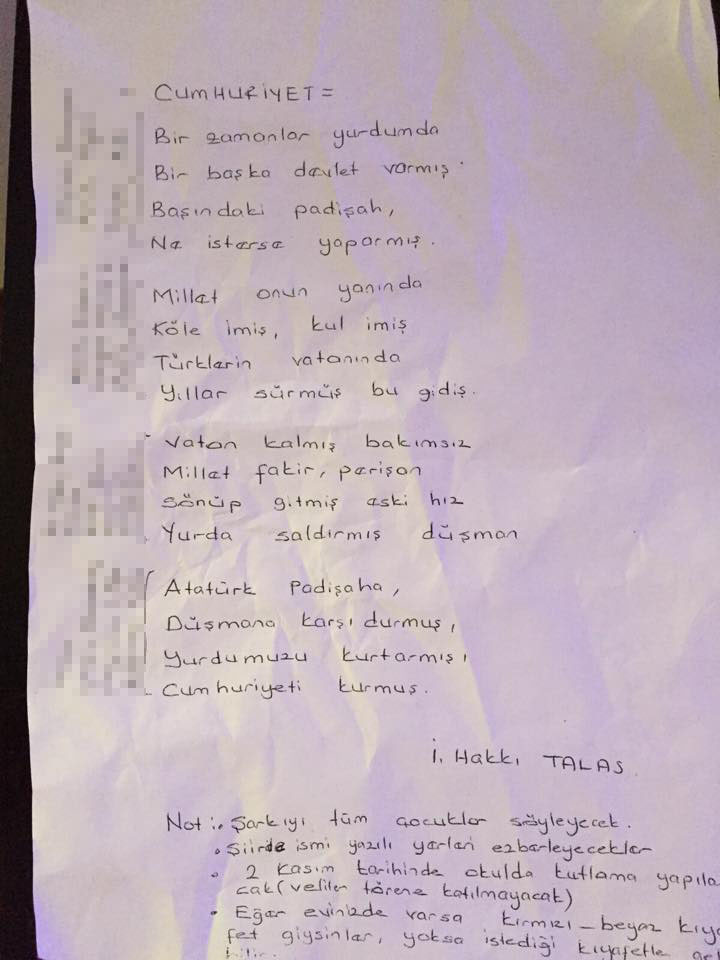 CUMHURİYET =
Bir zamanlar yurdumda
Bir başka devlet varmış
Başındaki padişah,
Ne isterse yaparmış.
Millet onun yanında
Köle imiş, kul imiş
Türklerin vatanında
Yıllar sürmüş bu gidiş.
Vatan kalmış bakımsız
Millet fakir, perişan
Sönüp gitmiş eski hız
Yurda saldırmış düşman
Atatürk Padişaha,
Düşmana karşı durmuş,
Yurdumuzu kurtarmış,
Cumhuriyeti kurmuş.
İ. Hakkı TALAS
Not :. Şarkıyı tüm çocuklar söyleyecek.
• Şiirde ismi yazılı yerleri ezberleyecekler
• 2 Kasım tarihinde okulda kutlama yapıla
cak (veliler törene katılmayacak)
• Eğer evinizde varsa kırmızı-beyaz kıya
fet giysinler, yoksa istediği kıyafetle gel
bilir.